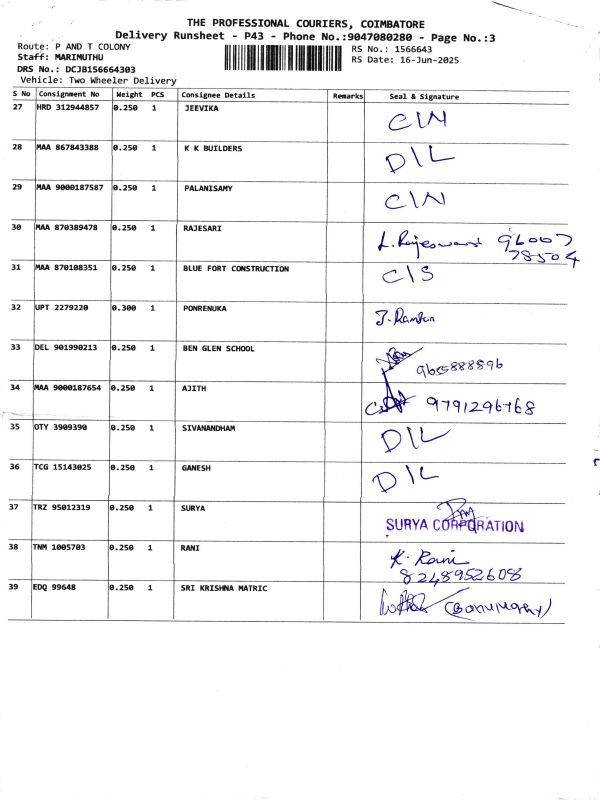 THE PROFESSIONAL COURIERS, COIMBATORE
Delivery Runsheet - P43 - Phone No.:9047080280 - Page No.:3
Route: P AND T COLONY RS No.: 1566643
Staff: MARIMUTHU RS Date: 16-Jun-2025
DRS No.: DCJB156664303
Vehicle: Two Wheeler Delivery
S No Consignment No Weight PCS Consignee Details Remarks Seal & Signature
27 HRD 312944857 0.250 1 JEEVIKA C/N
28 MAA 867843388 0.250 1 K K BUILDERS D/L
29 MAA 9000187587 0.250 1 PALANISAMY C/N
30 MAA 870389478 0.250 1 RAJESARI L. Rajeswari 96007
78504
31 MAA 870108351 0.250 1 BLUE FORT CONSTRUCTION C/S
32 UPT 2279220 0.300 1 PONRENUKA
33 DEL 901990213 0.250 1 BEN GLEN SCHOOL 9655888896
34 MAA 9000187654 0.250 1 AJITH 9791296768
35 OTY 3909390 0.250 1 SIVANANDHAM D/L
36 TCG 15143025 0.250 1 GANESH D/L
37 TRZ 95012319 0.250 1 SURYA SURYA CORPORATION
38 TNM 1005703 0.250 1 RANI K. Rani
8248952608
39 EDQ 99648 0.250 1 SRI KRISHNA MATRIC